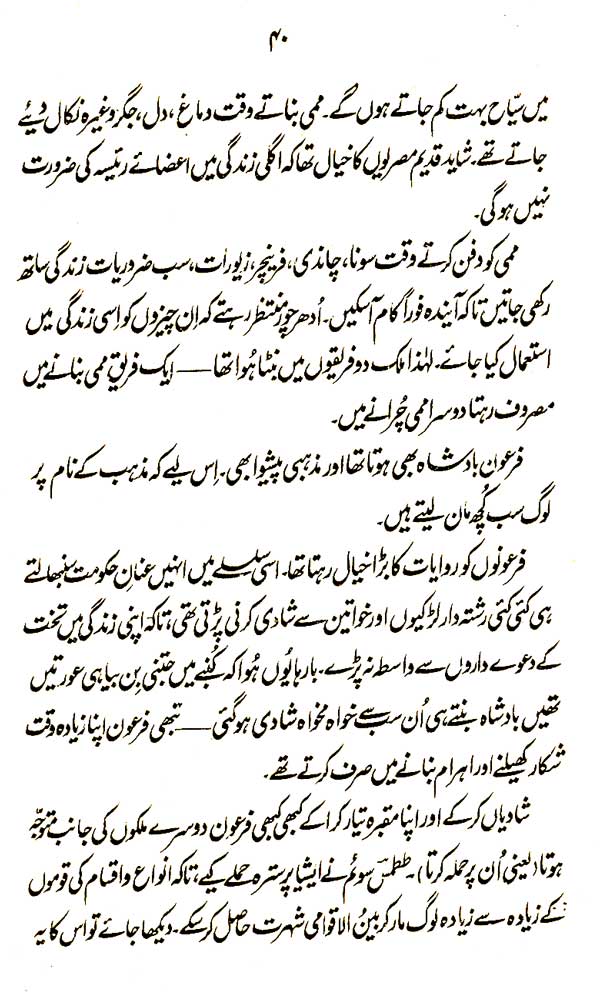 ۴۰
میں سیّاح بہت کم جاتے ہوں گے۔ ممی بناتے وقت دماغ، دل، جگر وغیرہ نکال دیئے
جاتے تھے۔ شاید قدیم مصریوں کا خیال تھا کہ اگلی زندگی میں اعضائے رئیسہ کی ضرورت
نہیں ہوگی۔
ممی کو دفن کرتے وقت سونا، چاندی، فرنیچر، زیورات، سب ضروریات زندگی ساتھ
رکھی جاتیں تاکہ آیندہ فوراً کام آسکیں۔ اُدھر چور منتظر رہتے کہ اِن چیزوں کو اِسی زندگی میں
استعمال کیا جائے۔ لہٰذا ملک دو فریقوں میں بٹا ہُوا تھا —— ایک فریق ممی بنانے میں
مصروف رہتا دوسرا ممی چُرانے میں۔
فرعون بادشاہ بھی ہوتا تھا اور مذہبی پیشوا بھی۔ اِس لیے کہ مذہب کے نام پر
لوگ سب کُچھ مان لیتے ہیں۔
فرعونوں کو روایات کا بڑا خیال رہتا تھا۔ اسی سلسلے میں انہیں عنانِ حکومت سنبھالتے
ہی کئی کئی رشتہ دار لڑکیوں اور خواتین سے شادی کرنی پڑتی تھی، تاکہ اپنی زندگی میں تخت
کے دعوے داروں سے واسطہ نہ پڑے۔ بارہا یُوں ہُوا کہ کُنبے میں جتنی بِن بیاہی عورتیں
تھیں بادشاہ بنتے ہی اُن سب سے خواہ مخواہ شادی ہوگئی —— تبھی فرعون اپنا زیادہ وقت
شکار کھیلنے اور اہرام بنانے میں صرف کرتے تھے۔
شادیاں کرکے اور اپنا مقبرہ تیار کرا کے کبھی کبھی فرعون دوسرے ملکوں کی جانب متوجّہ
ہوتا (یعنی اُن پر حملہ کرتا)۔ ططمس سوئم نے ایشیا پر سترہ حملے کیے، تاکہ انواع و اقسام کی قوموں
کے زیادہ سے زیادہ لوگ مار کر بینُ الاقوامی شہرت حاصل کرسکے۔ دیکھا جائے تو اس کا یہ